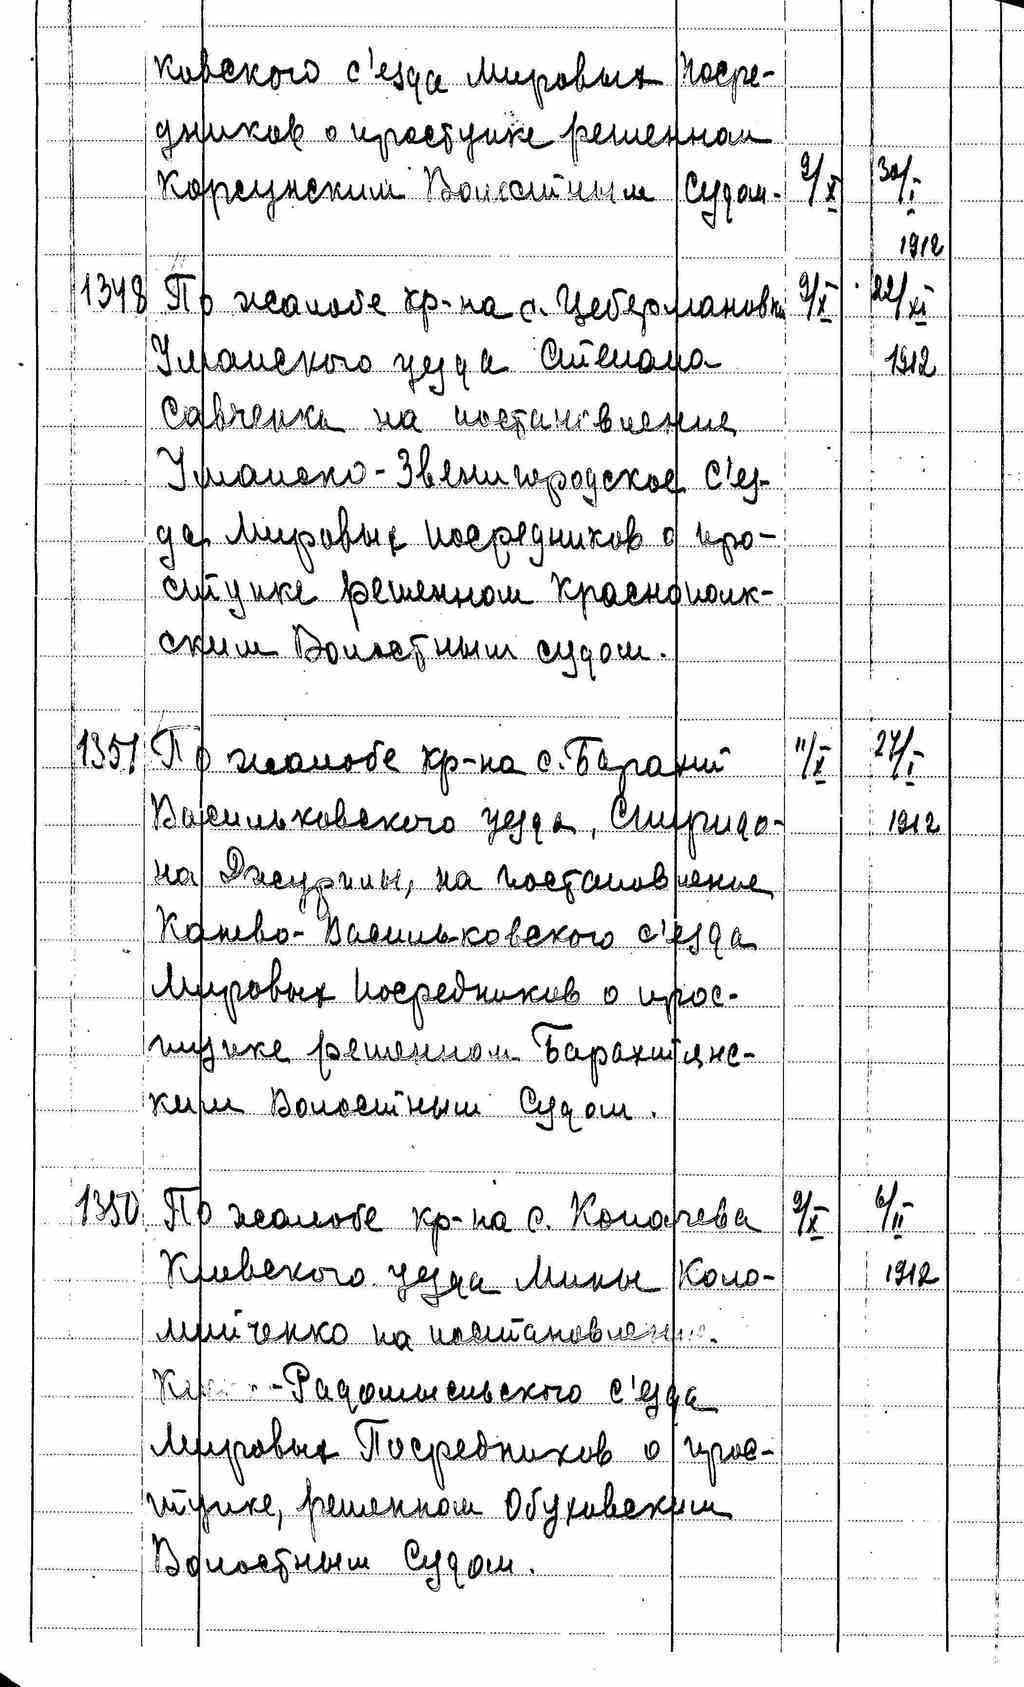 ковского с'езда Мировых Посре-
дников о проступке решенном
Корсунским Волостным Судом. 9/X 30/I
1912
1348 По жалобе кр-на с. Цебермановки 9/X 22/XI
Уманского уезда Степана 1912
Савченка на постановление
Уманско-Звенигородское С'ез-
да Мировых посредников о про-
ступке решенном Краснополк-
ским Волостным судом.
1351 По жалобе кр-на с. Барахти 11/X 27/I
Васильковского уезда, Спиридо- 1912
на Джурины, на постановление
Канево-Васильковского с'езда
Мировых Посредников о прос-
тупке решенном Барахтянс-
ким Волостным Судом.
1350 По жалобе кр-на с. Копачева 9/X 6/II
Киевского уезда Мины Коло- 1912
мийченко на постановление
-Радомысльского с'езда
Мировых Посредников о прос-
тупке, решенном Обуховским
Волостным Судом.